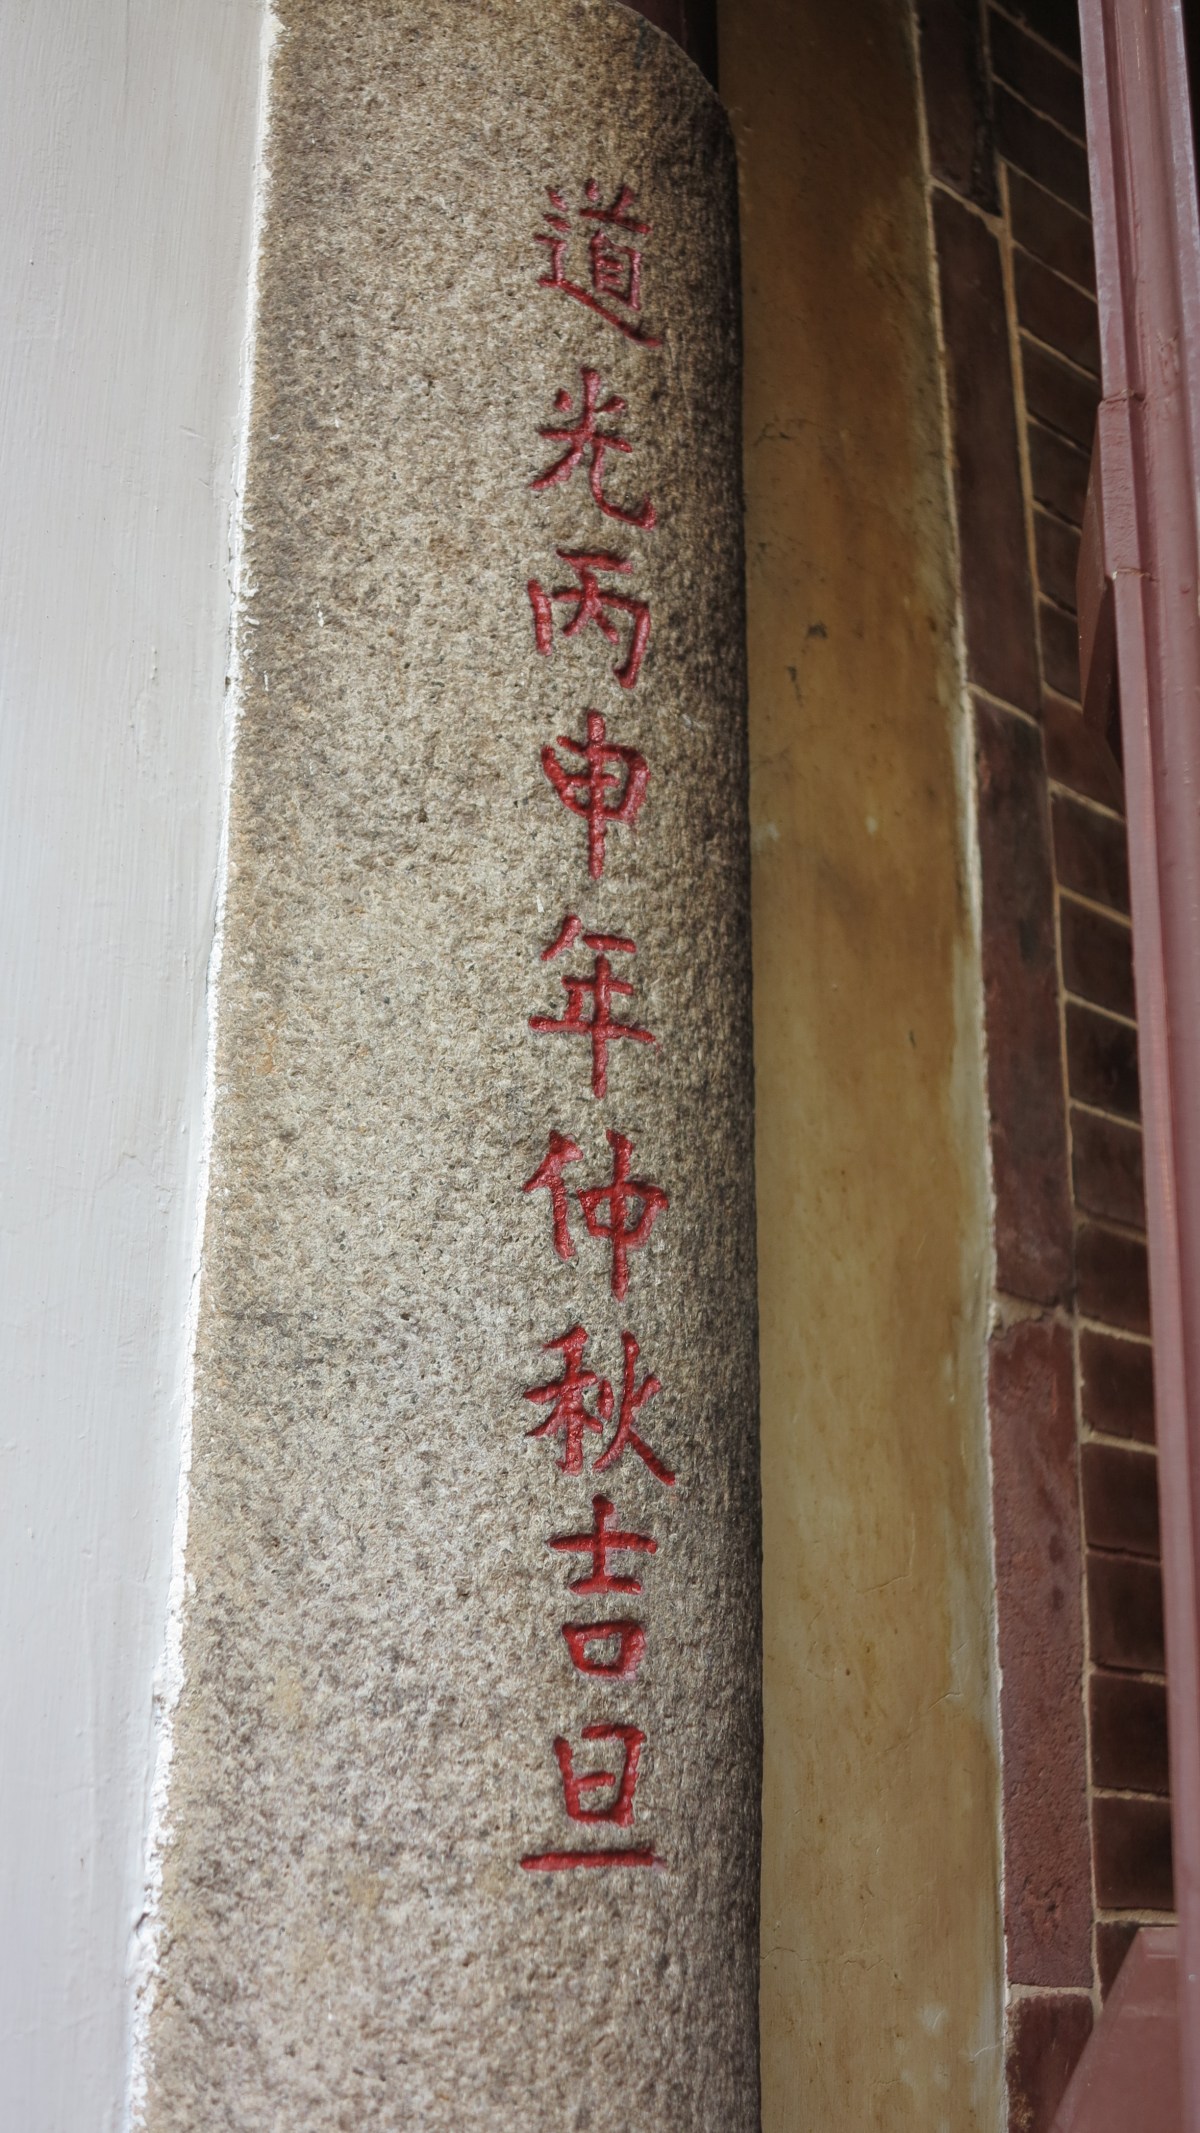 道光丙申年仲秋吉旦